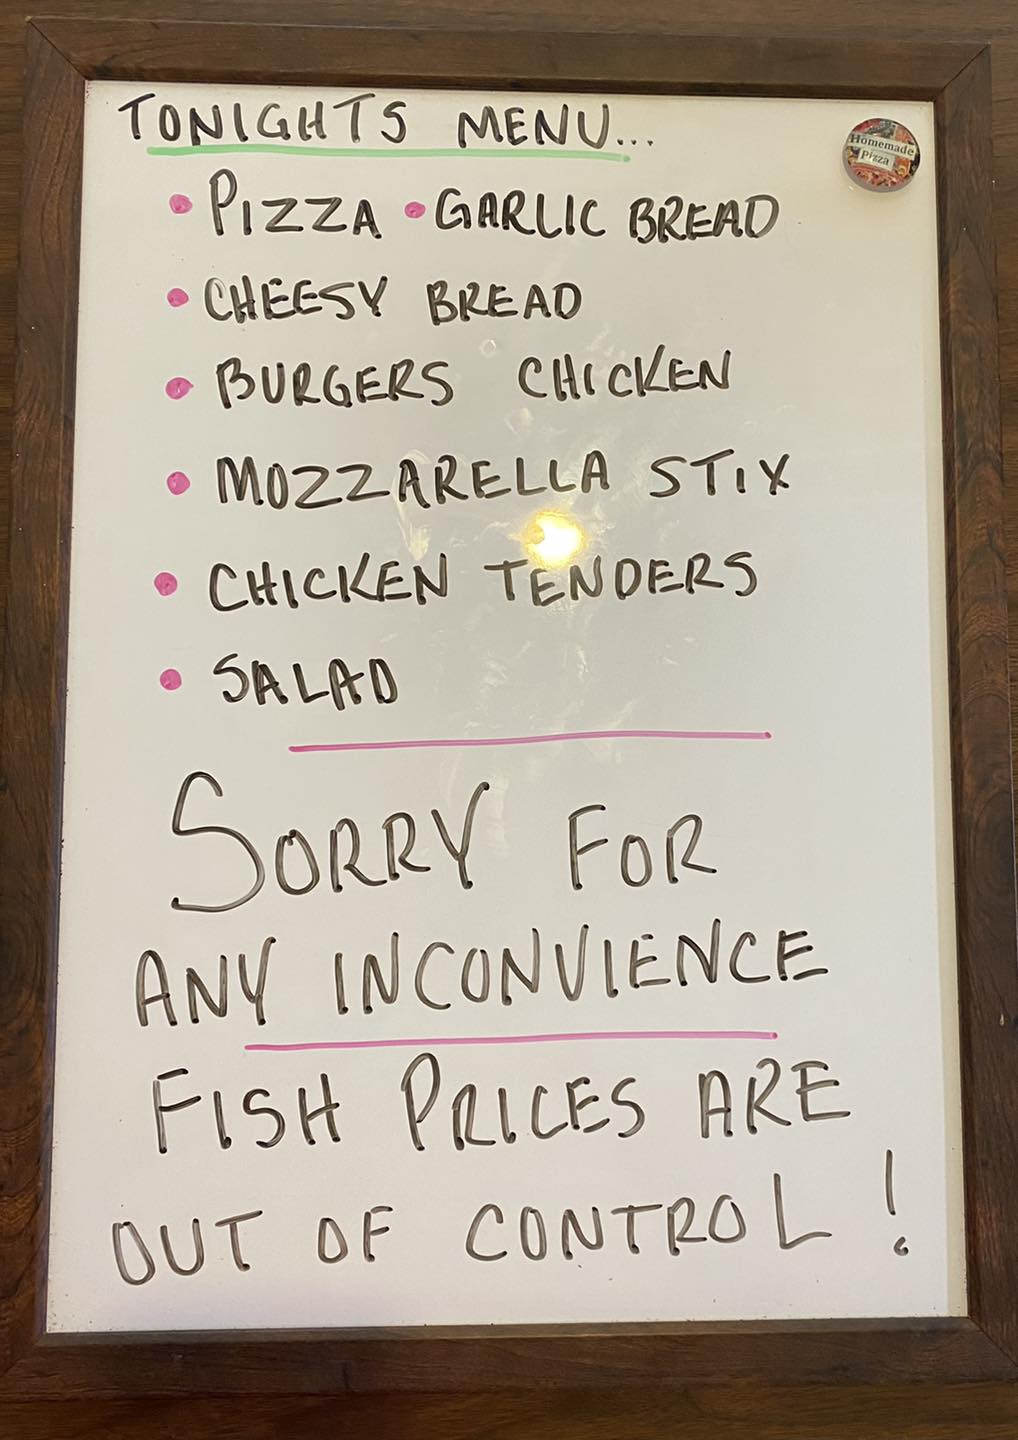 TONIGHTS MENU...
Homemade
Pizza
• PIZZA • GARLIC BREAD
• CHEESY BREAD
• BURGERS CHICKEN
• MOZZARELLA STIX
• CHICKEN TENDERS
• SALAD
SORRY FOR
ANY INCONVIENCE
FISH PRICES ARE
OUT OF CONTROL!